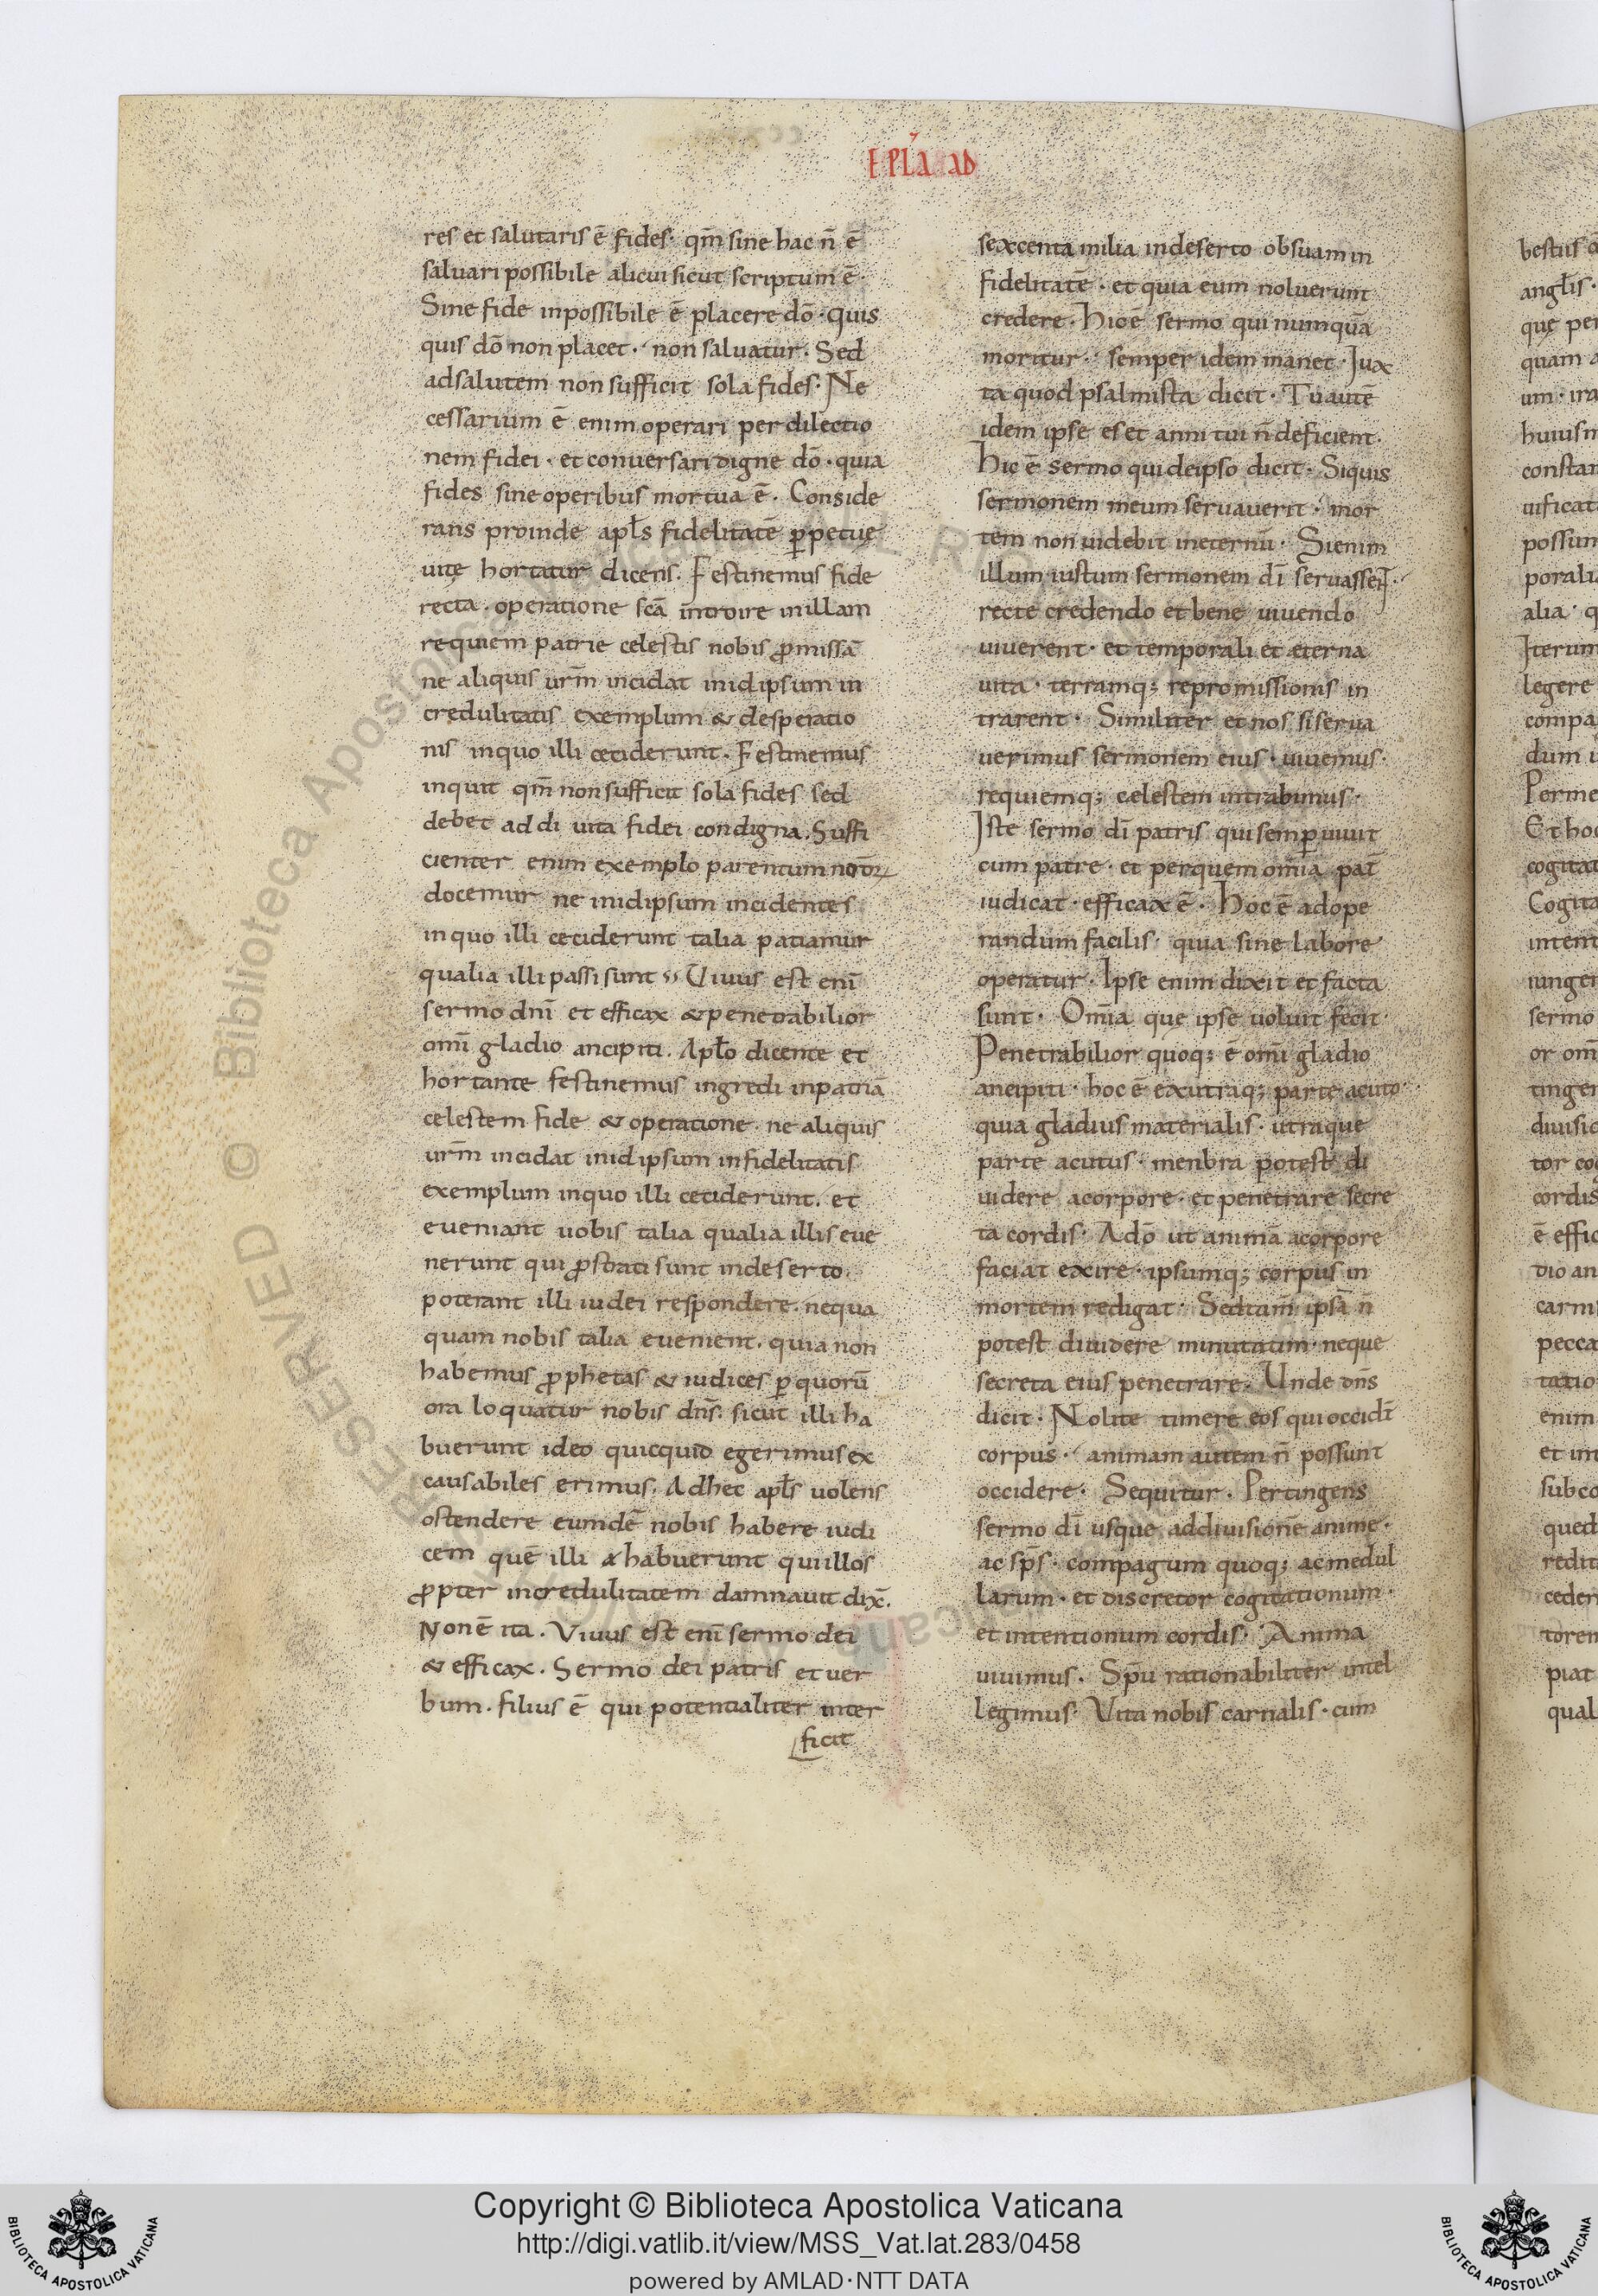 EPLA AD
res et salutaris ē fides· qm̄ sine hac n̄ ē
saluari possibile alicui sicut scriptum ē·
Sine fide inpossibile ē placere dō· quis
quis dō non placet· non saluatur· Sed
ad salutem non sufficit sola fides· Ne
cessarium ē enim operari per dilectio
nem fidei· et conuersari digne dō· quia
fides sine operibus mortua ē. Conside
rans proinde apl̄s fidelitatē ꝑpetuę
uitę hortatur dicens. Festinemus fide
recta. operatione scā introire in illam
requiem patrie celestis nobis ꝓmissā
ne aliquis urm̄ incidat in idipsum in
credulitatis exemplum & desperatio
nis in quo illi ceciderunt. Festinemus
inquit qm̄ non sufficit sola fides sed
debet addi uita fidei condigna. Suffi
cienter enim exemplo parentum
docemur ne in idipsum incidentes
in quo illi ceciderunt talia patiamur
qualia illi passi sunt Uiuus est enī
sermo dn̄i et efficax & penetrabilior
omī gladio ancipiti. Apl̄o dicente et
hortante festinemus ingredi in patriā
celestem fide & operatione. ne aliquis
urm̄ incidat in idipsum infidelitatis
exemplum in quo illi ceciderunt. et
eueniant uobis talia qualia illis eue
nerunt qui ꝓstrati sunt in deserto.
poterant illi iudei respondere. nequa
quam nobis talia euenient. quia non
habemus ꝓphetas & iudices ꝑ quorū
ora loquatur nobis dn̄s. sicut illi ha
buerunt ideo quicquid egerimus ex
causabiles erimus. Ad hec apl̄s uolens
ostendere eumdē nobis habere iudi
cem quē illi habuerunt qui illos
ꝓpter incredulitatem damnauit dix̄.
Non ē ita. Viuus est enī sermo dei
& efficax. Sermo dei patris et uer
bum. filius ē qui potentialiter inter
ficit
sexcenta milia in deserto ob suam in
fidelitatē· et quia eum noluerunt
credere· Hic ē sermo qui numquā
moritur· semper idem manet· Jux
ta quod psalmista dicit· Tu autē
idem ipse es et anni tui n̄ deficient·
Hic ē sermo qui de ipso dicit· Siquis
sermonem meum seruauerit· mor
tem non uidebit in eternū· Si enim
illum iustum sermonem dī seruassent·
recte credendo et bene uiuendo
uiuerent· et temporali et eterna
uita· terramq; repromissionis in
trarent· Similiter et nos si serua
uerimus sermonem eius· uiuemus·
requiemq; celestem intrabimus·
Iste sermo dī patris qui semꝑ uiuit
cum patre· et per quem omīa pat̄
iudicat· efficax ē· Hoc ē ad ope
randum facilis· quia sine labore
operatur· Ipse enim dixit et facta
sunt· Omīa que ipse uoluit fecit·
Penetrabilior quoq; ē omī gladio
ancipiti· hoc ē ex utraq; parte acuto·
quia gladius materialis· utraque
parte acutus· menbra potest di
uidere a corpore· et penetrare secre
ta cordis· Adō ut animā a corpore
faciat exire· ipsumq; corpus in
mortem redigat· Sed tam̄ ipsā n̄
potest diuidere minutatim· neque
secreta eius penetrare· Unde dn̄s
dicit· Nolite timere eos qui occidt̄
corpus· animam autem n̄ possunt
occidere· Sequitur· Pertingens
sermo dī usque ad diuisionē anime·
ac sp̄s· compagum quoq; ac medul
larum· et discretor cogitationum·
et intentionum cordis· Anima
uiuimus· Sp̄u rationabiliter intel
legimus· Vita nobis carnalis· cum
Copyright © Biblioteca Apostolica Vaticana
http://digi.vatlib.it/view/MSS_Vat.lat.283/0458
powered by AMLAD·NTT DATA